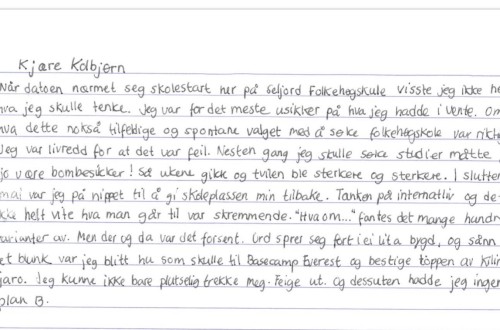 Kjære Kolbjørn
Når datoen nærmet seg skolestart her på Seljord Folkehøgskule visste jeg ikke he
hva jeg skulle tenke. Jeg var for det meste usikker på hva jeg hadde i vente. Om
hva dette nokså tilfeldige og spontane valget med å søke folkehøgskole var rikti
Jeg var livredd for at det var feil. Nesten gang jeg skulle søke studier måtte j
jo være bombesikker! Så ukene gikk og tvilen ble sterkere og sterkere. I slutten
mai var jeg på nippet til å gi skoleplassen min tilbake. Tanken på internatliv og de
ikke helt vite hva man går til var skremmende. "Hva om..." fantes det mange hundre
varianter av. Men der og da var det forsent. Ord sprer seg fort i ei lita bygd, og sånn
et bunk var jeg blitt hu som skulle til Basecamp Everest og bestige toppen av Kilim
jaro. Jeg kunne ikke bare plutselig trekke meg. Feige ut. og dessuten hadde jeg ingen
plan B.